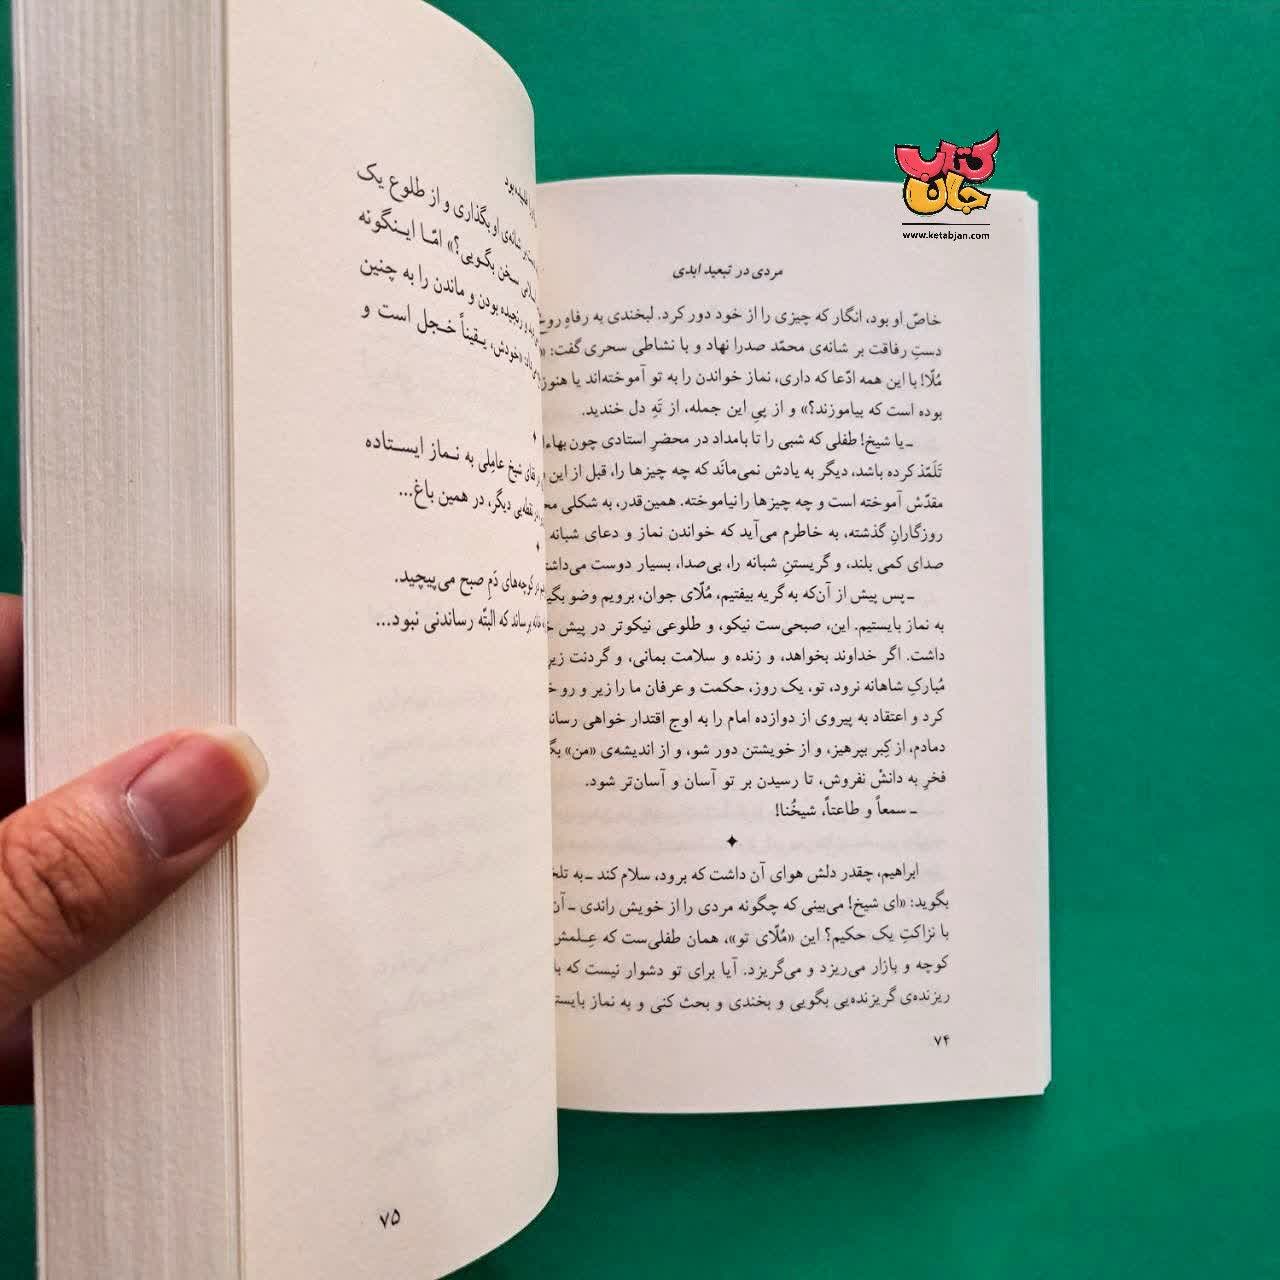 کتاب جان
www.ketabjan.com
مردی در تبعید ابدی
خاصّ او بود، انگار که چیزی را از خود دور کرد. لبخندی به رفاهِ روح
دستِ رفاقت بر شانه‌ی محمّد صدرا نهاد و با نشاطی سحری گفت: «
مُلّا! با این همه ادّعا که داری، نماز خواندن را به تو آموخته‌اند یا هنوز
بوده است که بیاموزند؟» و از پیِ این جمله، از تَهِ دل خندید.
ـ یا شیخ! طفلی که شبی را تا بامداد در محضرِ استادی چون بهاء
تَلَمّذ کرده باشد، دیگر به یادش نمی‌مانَد که چه چیزها را، قبل از این
مقدّس آموخته است و چه چیزها را نیاموخته. همین‌قدر، به شکلی
روزگارانِ گذشته، به خاطرم می‌آید که خواندن نماز و دعای شبانه
صدای کمی بلند، و گریستنِ شبانه را، بی‌صدا، بسیار دوست می‌داشت
ـ پس پیش از آن‌که به گریه بیفتیم، مُلّای جوان، برویم وضو
به نماز بایستیم. این، صبحی‌ست نیکو، و طلوعی نیکوتر در پیش
داشت. اگر خداوند بخواهد، و زنده و سلامت بمانی، و گردنت زیرِ
مُبارکِ شاهانه نرود، تو، یک روز، حکمت و عرفان ما را زیر و رو
کرد و اعتقاد به پیروی از دوازده امام را به اوج اقتدار خواهی
دمادم، از کِبر بپرهیز، و از خویشتن دور شو، و از اندیشه‌ی «من»
فخرِ به دانشْ نفروش، تا رسیدن بر تو آسان و آسان‌تر شود.
ـ سمعاً و طاعتاً، شیخُنا!
✦
ابراهیم، چقدر دلش هوای آن داشت که برود، سلام کند ـ به
بگوید: «ای شیخ! می‌بینی که چگونه مردی را از خویش راندی ـ آن
با نزاکتِ یک حکیم؟ این «مُلّای تو»، همان طفلی‌ست که عِـلمش
کوچه و بازار می‌ریزد و می‌گریزد. آیا برای تو دشوار نیست که با
ریزنده‌ی گریزنده‌یی بگویی و بخندی و بحث کنی و به نماز
۷۴
بود
شانه‌ی او بگذاری و از طلوع یک
سخن بگویی؟» امّـا ایـنگونه
و رنجیده بودن و ماندن را به چنین
«خودش، یـقیناً خـجل است و
✦
شیخ عامِلی به نـماز ایسـتاده
نقطه‌یی دیگر، در همین باغ...
✦
کوچه‌های دَمِ صبح می‌پیچید.
برساند که البتّه رساندنی نبود...
۷۵